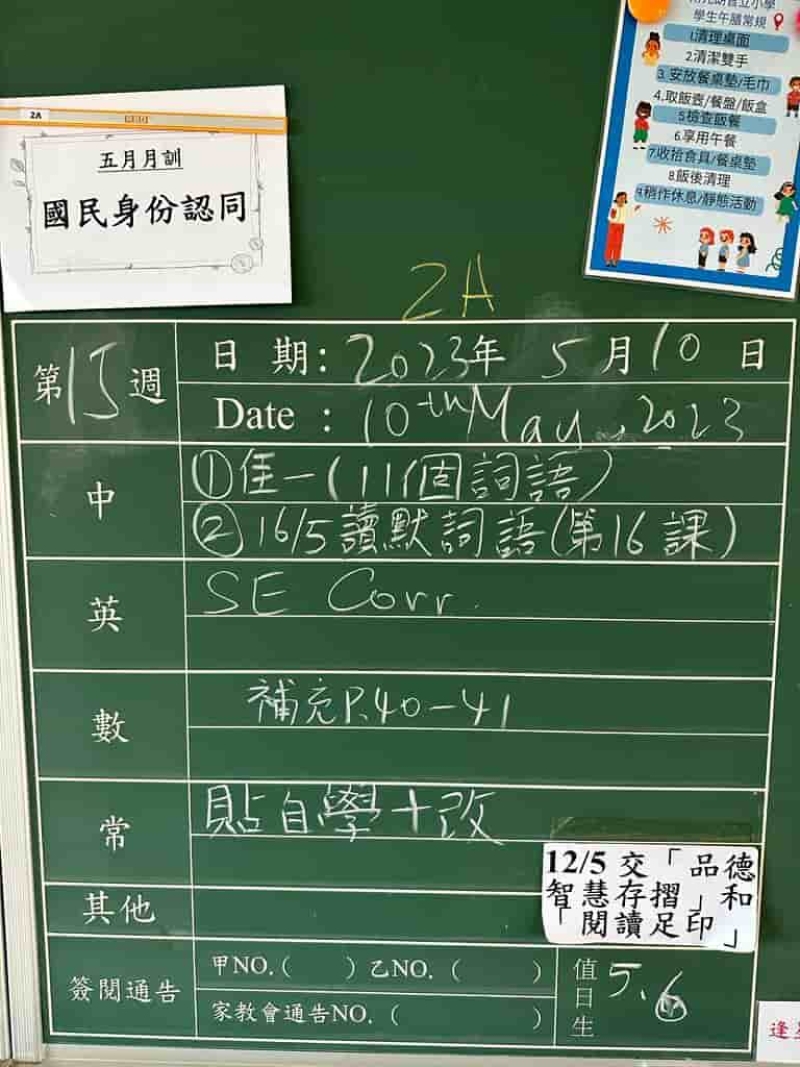 學生午膳常規
1.清理桌面
2.清潔雙手
3.安放餐桌墊/毛巾
4.取飯壺/餐盤/飯盒
5檢查飯餐
6.享用午餐
7.收拾食具/餐桌墊
8.飯後清理
9.稍作休息/靜態活動
2A
五月月訓
國民身份認同
2A
第15週
日 期: 2023年 5 月 10 日
Date : 10th May, 2023
中
①(11個詞語)
②16/5讀默詞語(第16課)
英
SE Corr.
數
補充P.40-41
常
貼自學+改
12/5 交「品德
智慧存摺」和
「閱讀足印」
其他
簽閱通告
甲NO.( ) 乙NO. ( )
家教會通告NO. ( )
值日生
5、6
逢